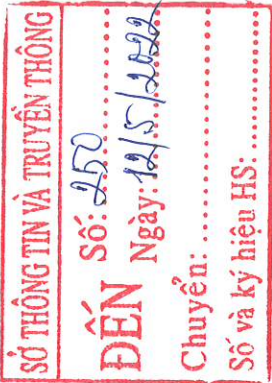 SỞ THÔNG TIN VÀ TRUYỀN THÔNG
ĐẾN
Số: 250
Ngày: 12/5/2022
Chuyển:
Số và ký hiệu HS: